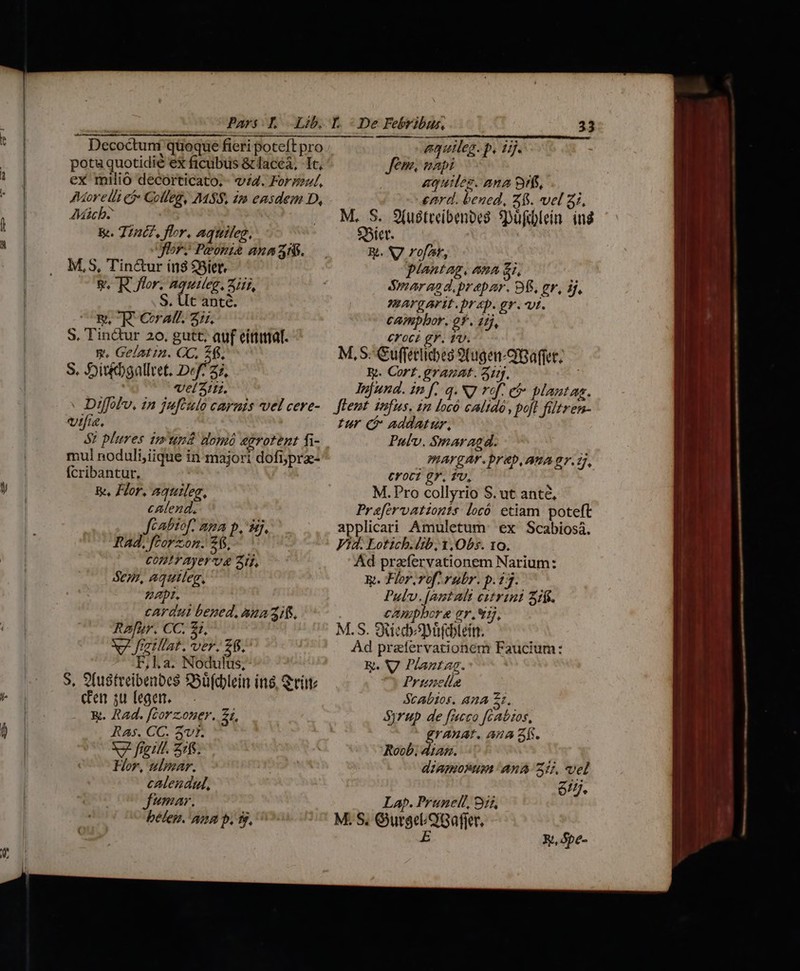 Pars I. Lib. I. De Febribus. 33
Decoctum quoque fieri potest pro
potu quotidie ex ficubus & lacca, It,
ex milio decorticato. vid. Formul.
Morelli & Colleg. MSS. in easdem D.
Mich.
℞. Tinct. flor. aquileg.
flor. Pæoniæ ana ʒiß.
M.S. Tinctur ins Bier.
℞. flor. aquileg. ʒiii,
S. Ut antè.
℞. Corall. ʒii.
S. Tinctur 20. gutt. auf einmal.
℞. Gelatin. CC. ℥ß.
S. Hirschgallret. Def. ʒi,
vel ʒiii.
Dissolv. in jusculo carnis vel cere-
visiæ.
Si plures in unâ domô ægrotent fi-
mul noduli, iique in majori dosi, præ-
scribantur.
℞. Flor. aquileg.
calend.
scabios. ana p. ij.
Rad. scorzon. ℥ß,
contrayervæ ʒii,
Sem. aquileg.
napi.
cardui bened. ana ʒiß.
Rasur. CC. ʒi.
sigillat. ver. ℥ß.
F. l. a. Nodulus,
S. Austreibendes Büschlein ins Trin-
cken zu legen.
℞. Rad. scorzoner. ℥i,
Ras. CC. ʒvi.
sigill. ʒiß.
Flor. ulmar.
calendul,
fumar.
belen. ana p. ij.
aquileg. p. iij.
sem. napi
aquileg. ana ℈iß,
card. bened. ℥ß. vel ℥i.
M. S. Austreibendes Püschlein ins
Bier.
℞. rosar,
plantag. ana ℥i,
Smaragd. præpar. ℈ß. gr. ij.
margarit. præp. gr. vi.
camphor. gr. iij,
croci gr. iv.
M.S. Eusserliches Augen-Wasser.
℞. Cort. granat. ʒiij.
Infund. in s. q. ros. & plantag.
stent infus. in locô calidô, post filtren-
tur & addatur,
Pulv. Smaragd.
margar. præp. ana gr. ij,
croci gr. iv.
M. Pro collyrio S. ut antè.
Præservationis locô etiam potest
applicari Amuletum ex Scabiosâ.
Vid. Lotich. lib. 1. Obs. 10.
Ad præservationem Narium:
℞. Flor. ros. rubr. p. ij.
Pulv. santali citrini ʒiß.
camphoræ gr. vij.
M.S. Riech-Püschlein.
Ad præservationem Faucium:
℞. Plantag.
Prunellæ
Scabios. ana ℥i.
Syrup de succo scabios,
granat. ana ℥ß.
Roob. dian.
diamorum ana ʒii. vel
ʒiij.
Lap. Prunell, ℈ii,
M. S. Gurgel-Wasser.
E ℞. Spe-